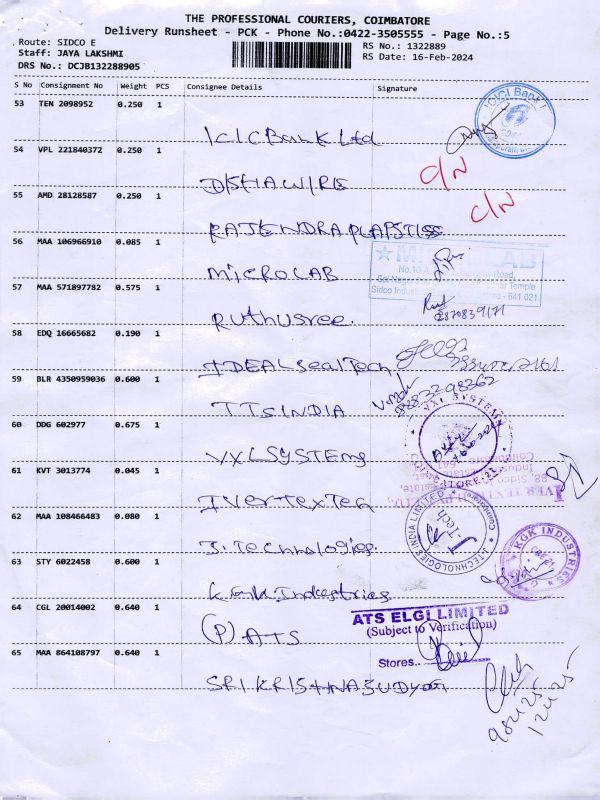 THE PROFESSIONAL COURIERS, COIMBATORE
Delivery Runsheet - PCK - Phone No.:0422-3505555 - Page No.:5
Route: SIDCO E
RS No.: 1322889
Staff: JAYA LAKSHMI
RS Date: 16-Feb-2024
DRS No.: DCJB132288905
S No Consignment No Weight PCS Consignee Details Signature
53 TEN 2098952 0.250 1
ICICI Bank
ICICBank Ltd
54 VPL 221840372 0.250 1
C/N
DISHAWIRE
55 AMD 28128587 0.250 1
C/N
RAJENDRA PLAPSTISS
56 MAA 106966910 0.085 1
LAB
No.10-A, Road,
Temple
Sidco Indust - 641 021
MICROLAB
57 MAA 571897782 0.575 1
8870839171
Ruthusree
58 EDQ 16665682 0.190 1
IDEALSealTech
59 BLR 4350959036 0.600 1
TTSINDIA
60 DDG 602977 0.675 1
VXL SYSTEMS
VXLSYSTEMS
61 KVT 3013774 0.045 1
IVertexTen
62 MAA 108466483 0.080 1
J-TECHNOLOGIES INDIA LIMITED
J-Tech
Coimbatore
J. Technologies
63 STY 6022458 0.600 1
KGK INDUSTRIES
KGK Industries
64 CGL 20014002 0.640 1
ATS ELGI LIMITED
(Subject to Verification)
(P) ATS
65 MAA 864108797 0.640 1
Stores..
SRI KRISHNASUDYOG